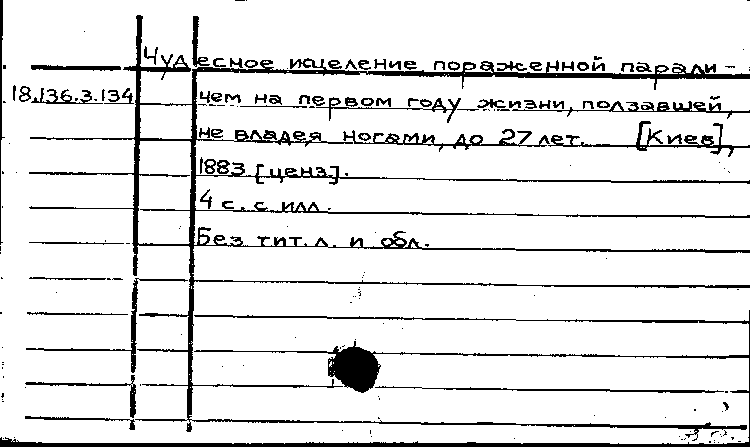 Чудесное исцеление пораженной парали-
18.136.3.134 чем на первом году жизни, ползавшей,
не владея ногами, до 27 лет. [Киев],
1883 [ценз].
4 с. с илл.
Без тит. л. и обл.